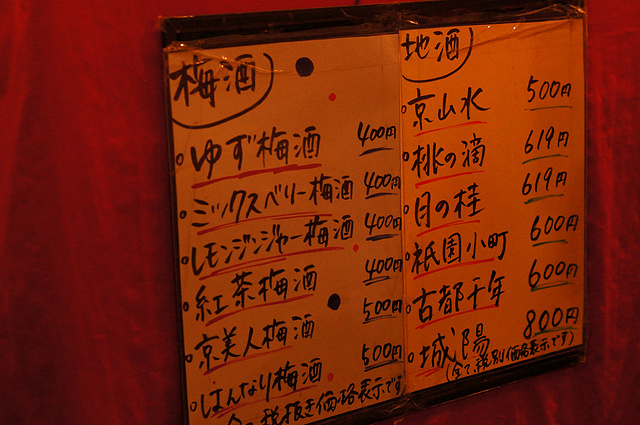 梅酒
ゆず梅酒 400円
ミックスベリー梅酒 400円
レモンジンジャー梅酒 400円
紅茶梅酒 400円
京美人梅酒 500円
はんなり梅酒 500円
税抜き価格表示です
地酒
京山水 500円
桃の滴 619円
月の桂 619円
祇園小町 600円
古都千年 600円
城陽 800円
(全て税別価格表示です)